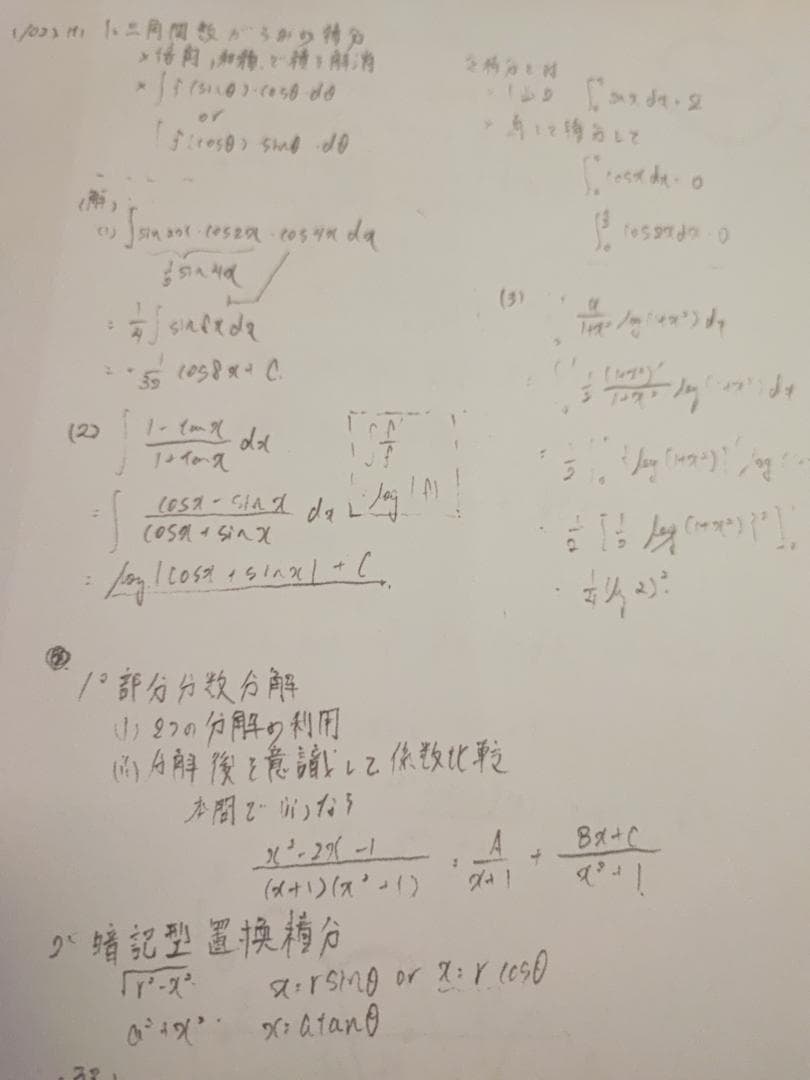 1. 三角関数がらみの積分
* 倍角, 和積で積を解消
* ∫f(sinθ)·cosθ·dθ
or
∫f(cosθ) sinθ·dθ
∫ sinx dx = 2
∫ cosx dx = 0
∫ cos2x dx = 0
(解)
(1) ∫sin2x·cos2x·cos4x dx
½ sin4x
= 1/4 ∫ sin8x dx
= - 1/32 cos8x + C.
(2) ∫ (1-tanx)/(1+tanx) dx
∫ f'/f
log|f|
= ∫ (cosx - sinx)/(cosx + sinx) dx
= log|cosx + sinx| + C
(3) ∫ x/(1+x²) log(1+x²) dx
∫ 1/2 (1+x²)'/(1+x²) log(1+x²) dx
= 1/2 ∫ {log(1+x²)}' log
= 1/2 [1/2 {log(1+x²)}²]
= 1/4 (log 2)².
1° 部分分数分解
(i) 2つの分解の利用
(ii) 分解後を意識して係数比較
本問で(ii)なら
(x²-2x-1)/((x+1)(x²+1)) = A/(x+1) + (Bx+C)/(x²+1)
2° 暗記型置換積分
√(r²-x²) x = r sinθ or x = r cosθ
a²+x² x = a tanθ